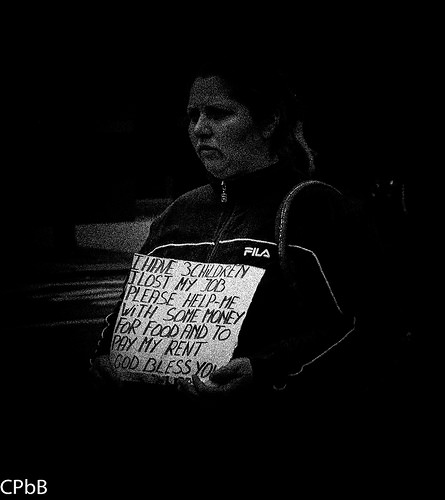 FILA
I HAVE 3CHILDREN
I LOST MY JOB
PLEASE HELP-ME
WITH SOME MONEY
FOR FOOD AND TO
PAY MY RENT
GOD BLESS YOU
CPbB